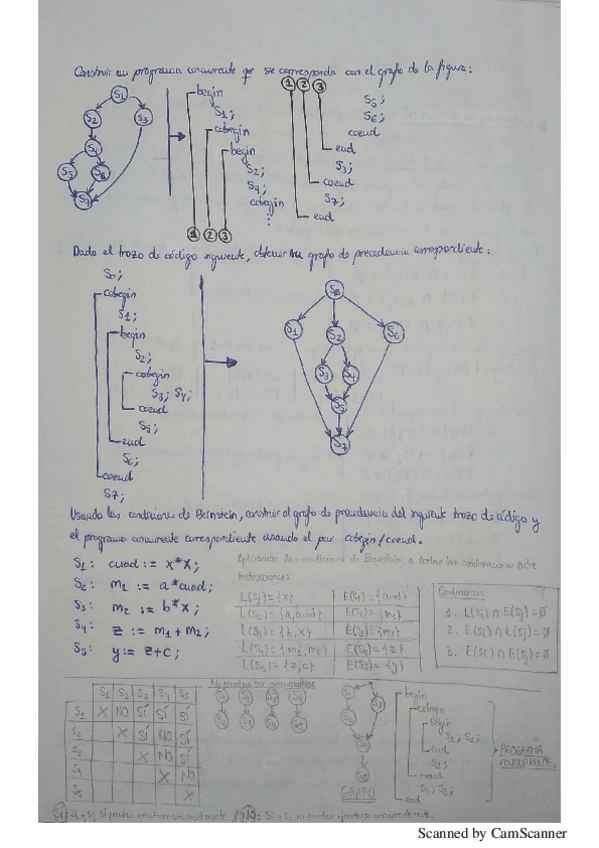 Construir un programa concurrente que se corresponda con el grafo de la figura:
S1
S2
S3
S4
S5
S6
S7
begin
S1;
cobegin
begin
S2;
S4;
cobegin
⋮
1 2 3
1 2 3
S5;
S6;
coend
end
S3;
coend
S7;
end
Dado el trozo de código siguiente, obtener su grafo de precedencia correspondiente:
S0;
cobegin
S1;
begin
S2;
cobegin
S3; S4;
coend
S5;
end
S6;
coend
S7;
S0
S1
S2
S6
S3
S4
S5
S7
Usando las condiciones de Bernstein, construir el grafo de precedencia del siguiente trozo de código y
el programa concurrente correspondiente usando el par cobegin/coend.
S1: cuad := x*x;
S2: m1 := a*cuad;
S3: m2 := b*x;
S4: z := m1+m2;
S5: y := z+c;
Aplicamos las condiciones de Bernstein a todas las combinaciones entre
instrucciones:
L(S1)={x} E(S1)={cuad}
L(S2)={a,cuad} E(S2)={m1}
L(S3)={b,x} E(S3)={m2}
L(S4)={m1,m2} E(S4)={z}
L(S5)={z,c} E(S5)={y}
Condiciones:
1. L(Si) ∩ E(Sj)=∅
2. E(Si) ∩ L(Sj)=∅
3. E(Si) ∩ E(Sj)=∅
S1 S2 S3 S4 S5
S1 X NO SÍ SÍ SÍ
S2 X SÍ NO SÍ
S3 X NO SÍ
S4 X NO
S5 X
No pueden ser concurrentes
GRAFO
begin
cobegin
begin
S1; S2;
end
S3;
coend
S4; S5;
end
PROGRAMA
CONCURRENTE
SÍ: Si y Sj sí pueden ejecutarse concurrentemente // NO: Si y Sj no pueden ejecutarse concurrentemente.
Scanned by CamScanner